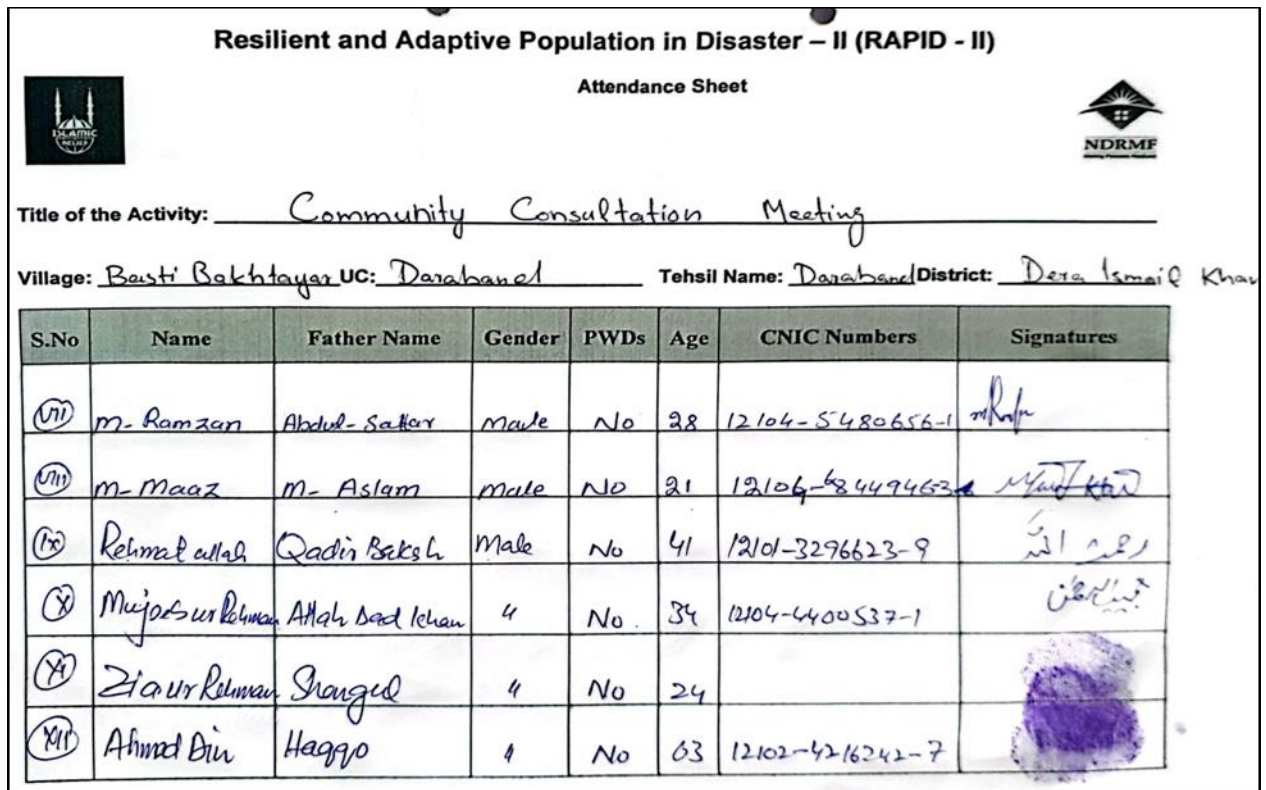 Resilient and Adaptive Population in Disaster – II (RAPID - II)
Attendance Sheet
ISLAMIC RELIEF
NDRMF
Title of the Activity: Community Consultation Meeting
Village: Basti Bakhtayar UC: Daraband Tehsil Name: Daraband District: Dera Ismail Khan
S.No Name Father Name Gender PWDs Age CNIC Numbers Signatures
VII M-Ramzan Abdul-Sattar Male No 28 12104-5480656-1
VIII M-Maaz M-Aslam Male No 21
IX Rehmat ullah Qadir Baksh Male No 41 12101-3296623-9 رحمت اللہ
X Mujeeb ur Rehman Allah Dad Khan " No. 34 12104-4400537-1
XI Zia ur Rehman Shangul " No 24
XII Ahmad Din Haqqo " No 63 12102-4216242-7